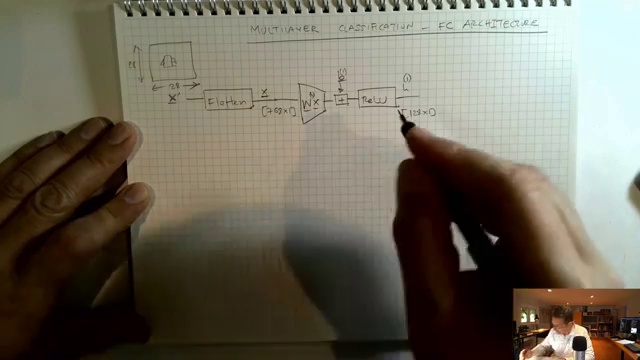 MULTILAYER CLASSIFICATION - FC ARCHITECTURE
28
28
x' Flatten x [768x1] W(1) x + b(1) ReLU h(1) [128x1]